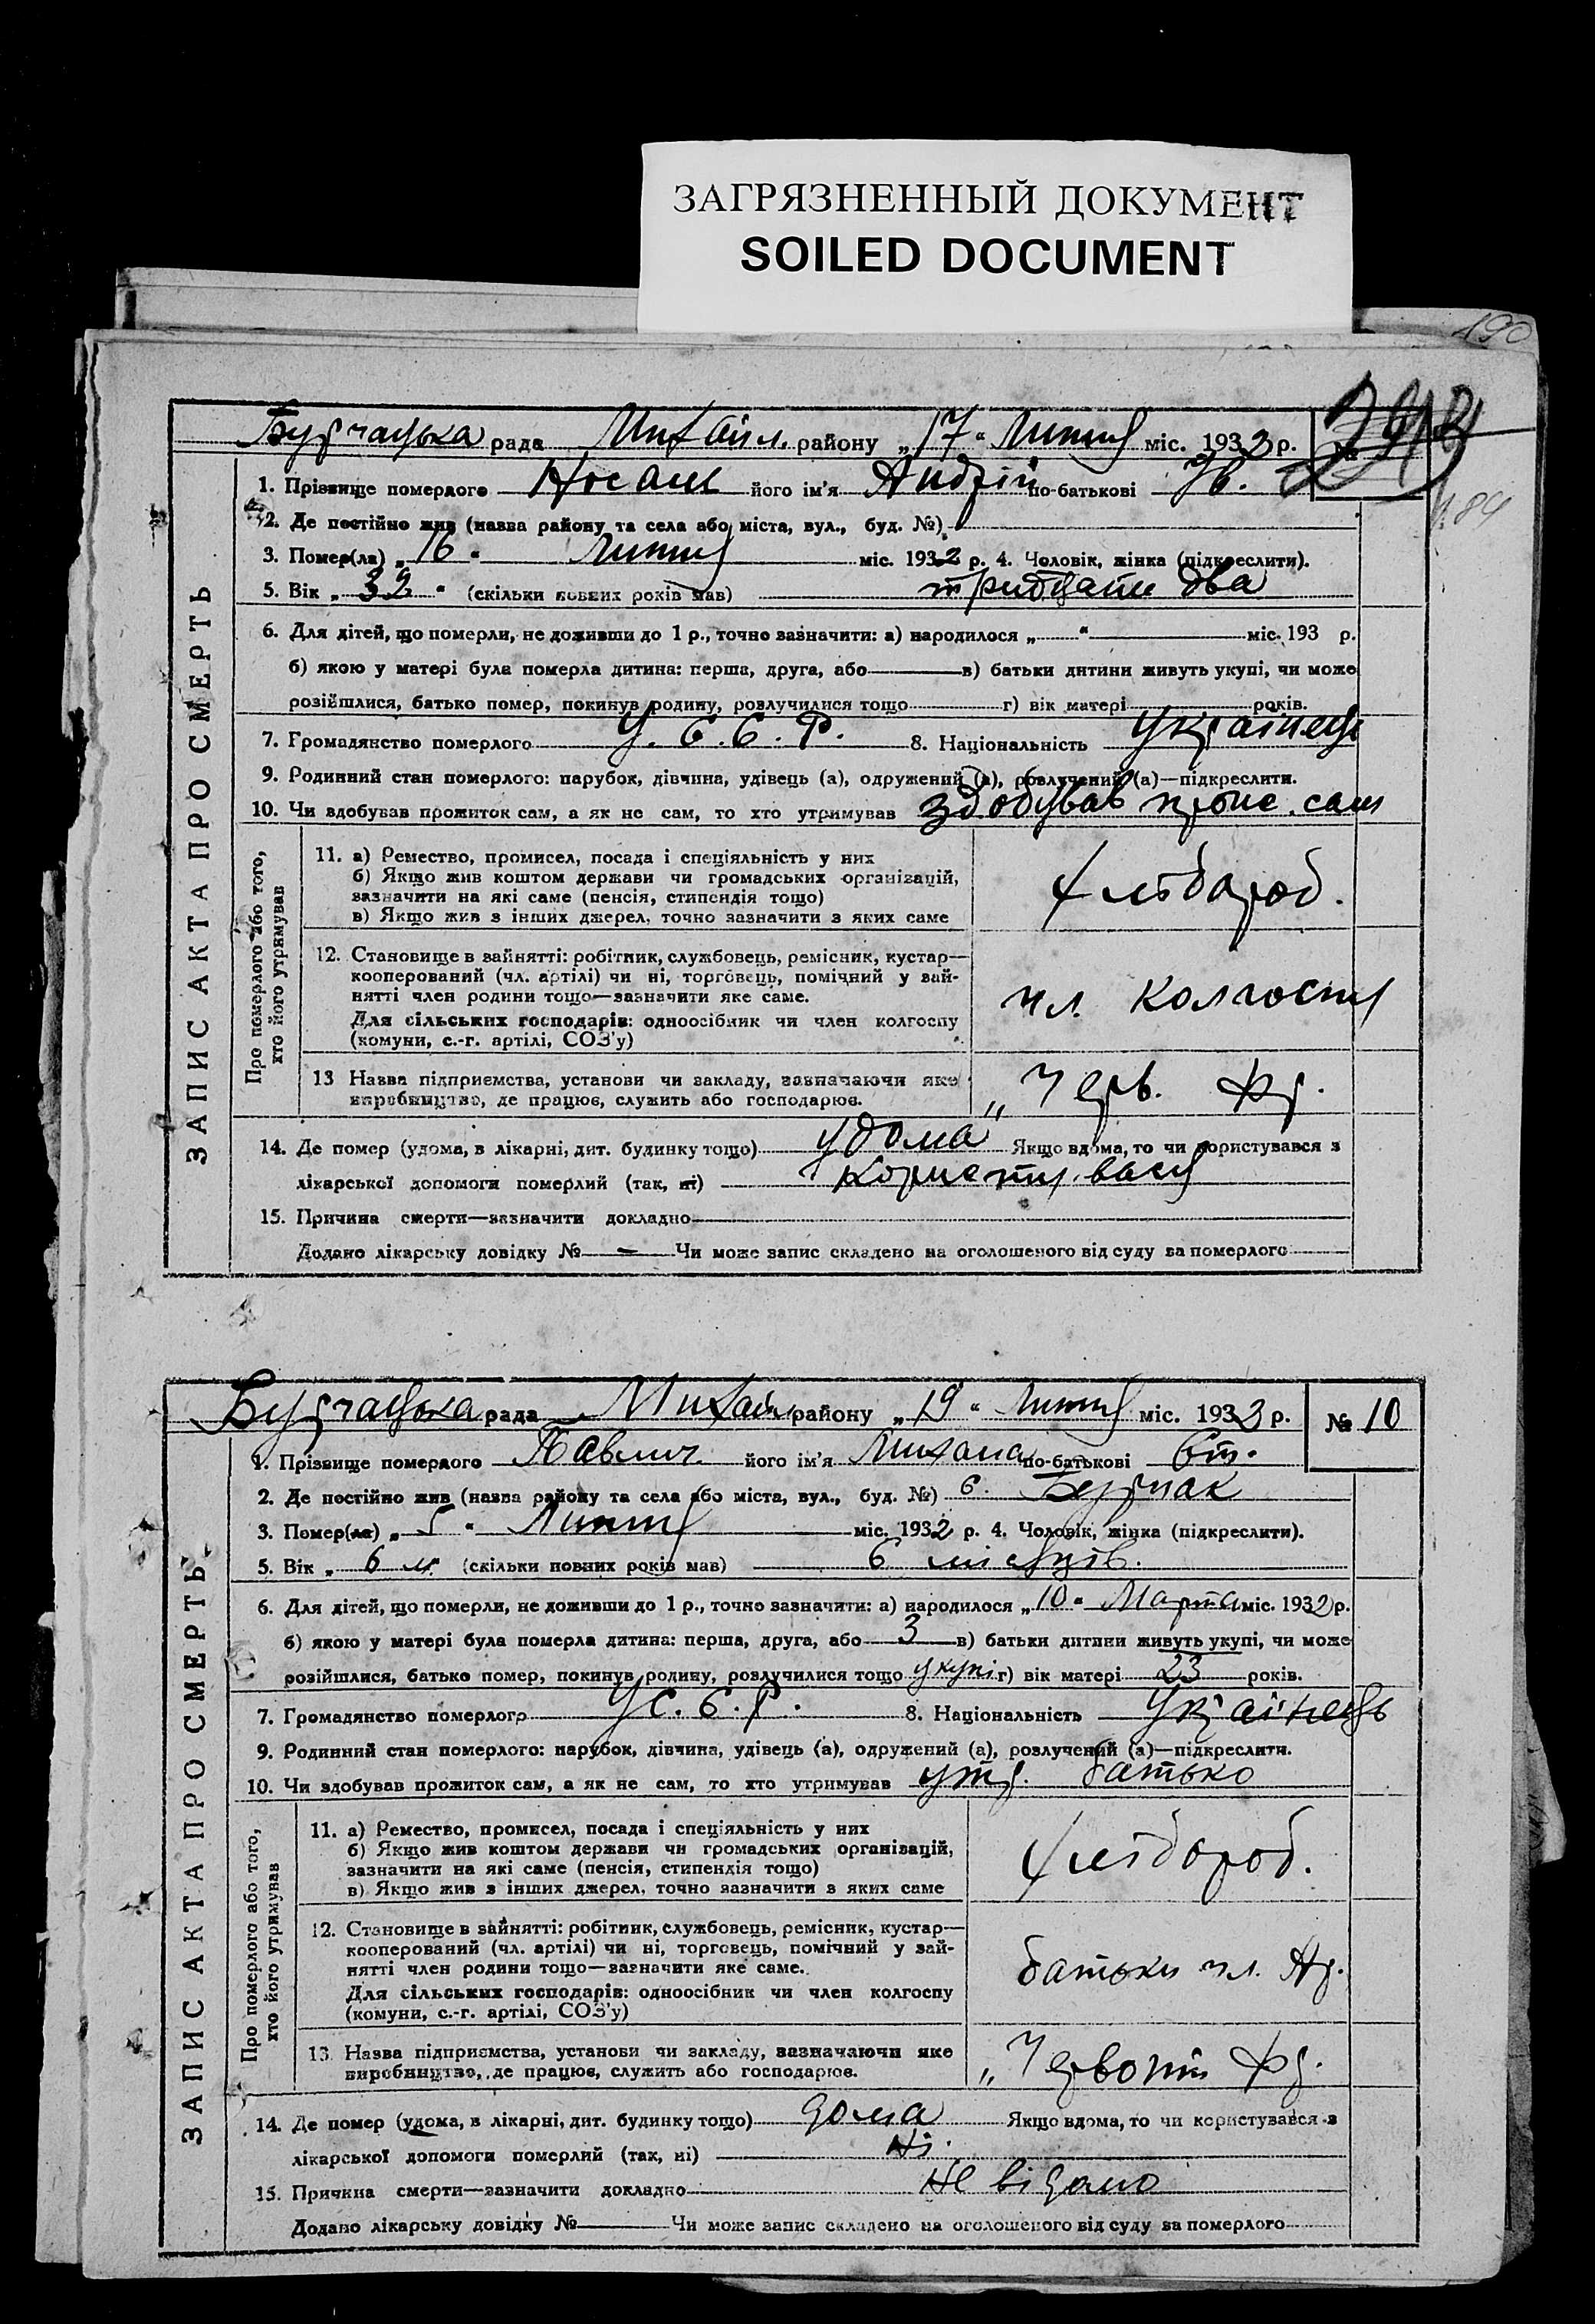 ЗАГРЯЗНЕННЫЙ ДОКУМЕНТ
SOILED DOCUMENT
190
рада Михайл. району „17“ Липня міс. 1932 р. №
1. Прізвище померлого Носаль його ім'я Андрій по-батькові Ів.
№ 84
2. Де постійно жив (назва району та села або міста, вул., буд. №)
3. Помер(ла) „16“ Липня міс. 1932 р. 4. Чоловік, жінка (підкреслити).
5. Вік „32“ (скільки повних років мав) тридцать два
6. Для дітей, що померли, не доживши до 1 р., точно зазначити: а) народилося „ “ міс. 193 р.
б) якою у матері була померла дитина: перша, друга, або в) батьки дитини живуть укупі, чи може
розійшлися, батько помер, покинув родину, розлучилися тощо г) вік матері років.
7. Громадянство померлого У. С. С. Р. 8. Національність Українець
9. Родинний стан померлого: парубок, дівчина, удівець (а), одружений (а), розлучений (а)—підкреслити.
10. Чи здобував прожиток сам, а як не сам, то хто утримував здобував сам
ЗАПИС АКТА ПРО СМЕРТЬ
Про померлого або того,
хто його утримував
11. а) Ремество, промисел, посада і спеціяльність у них
б) Якщо жив коштом держави чи громадських організацій,
зазначити на які саме (пенсія, стипендія тощо)
в) Якщо жив з інших джерел, точно зазначити з яких саме
хлібороб.
12. Становище в занятті: робітник, службовець, ремісник, кустар—
кооперований (чл. артілі) чи ні, торговець, помічний у зай-
нятті член родини тощо—зазначити яке саме.
Для сільських господарів: одноосібник чи член колгоспу
(комуни, с.-г. артілі, СОЗ'у)
чл. колгоспу
13 Назва підприємства, установи чи закладу, зазначаючи яке
виробництво, де працює, служить або господарює.
„Черв.
14. Де помер (удома, в лікарні, дит. будинку тощо) удома Якщо вдома, то чи користувався з
лікарської допомоги померлий (так, ні) Користувався
15. Причина смерти—зазначити докладно
Додано лікарську довідку № — Чи може запис складено на оголошеного від суду за померлого
рада Михайл. району „19“ Липня міс. 1933 р. № 10
1. Прізвище померлого Павлич його ім'я Михайла по-батькові Ст.
2. Де постійно жив (назва району та села або міста, вул., буд. №) с.
3. Помер(ла) „5“ Липня міс. 1932 р. 4. Чоловік, жінка (підкреслити).
5. Вік „6 м. (скільки повних років мав) 6 місяців.
6. Для дітей, що померли, не доживши до 1 р., точно зазначити: а) народилося „10“ Марта міс. 1932 р.
б) якою у матері була померла дитина: перша, друга, або 3 в) батьки дитини живуть укупі, чи може
розійшлися, батько помер, покинув родину, розлучилися тощо укупі г) вік матері 23 років.
7. Громадянство померлого УС.С.Р. 8. Національність Українець
9. Родинний стан померлого: парубок, дівчина, удівець (а), одружений (а), розлучений (а)—підкреслити.
10. Чи здобував прожиток сам, а як не сам, то хто утримував утр. батько
ЗАПИС АКТА ПРО СМЕРТЬ
Про померлого або того,
хто його утримував
11. а) Ремество, промисел, посада і спеціяльність у них
б) Якщо жив коштом держави чи громадських організацій,
зазначити на які саме (пенсія, стипендія тощо)
в) Якщо жив з інших джерел, точно зазначити з яких саме
хлібороб.
12. Становище в занятті: робітник, службовець, ремісник, кустар—
кооперований (чл. артілі) чи ні, торговець, помічний у зай-
нятті член родини тощо—зазначити яке саме.
Для сільських господарів: одноосібник чи член колгоспу
(комуни, с.-г. артілі, СОЗ'у)
батьки чл. Ар.
13. Назва підприємства, установи чи закладу, зазначаючи яке
виробництво, де працює, служить або господарює.
14. Де помер (удома, в лікарні, дит. будинку тощо) дома Якщо вдома, то чи користувався з
лікарської допомоги померлий (так, ні) Ні.
15. Причина смерти—зазначити докладно не відомо
Додано лікарську довідку № Чи може запис складено на оголошеного від суду за померлого